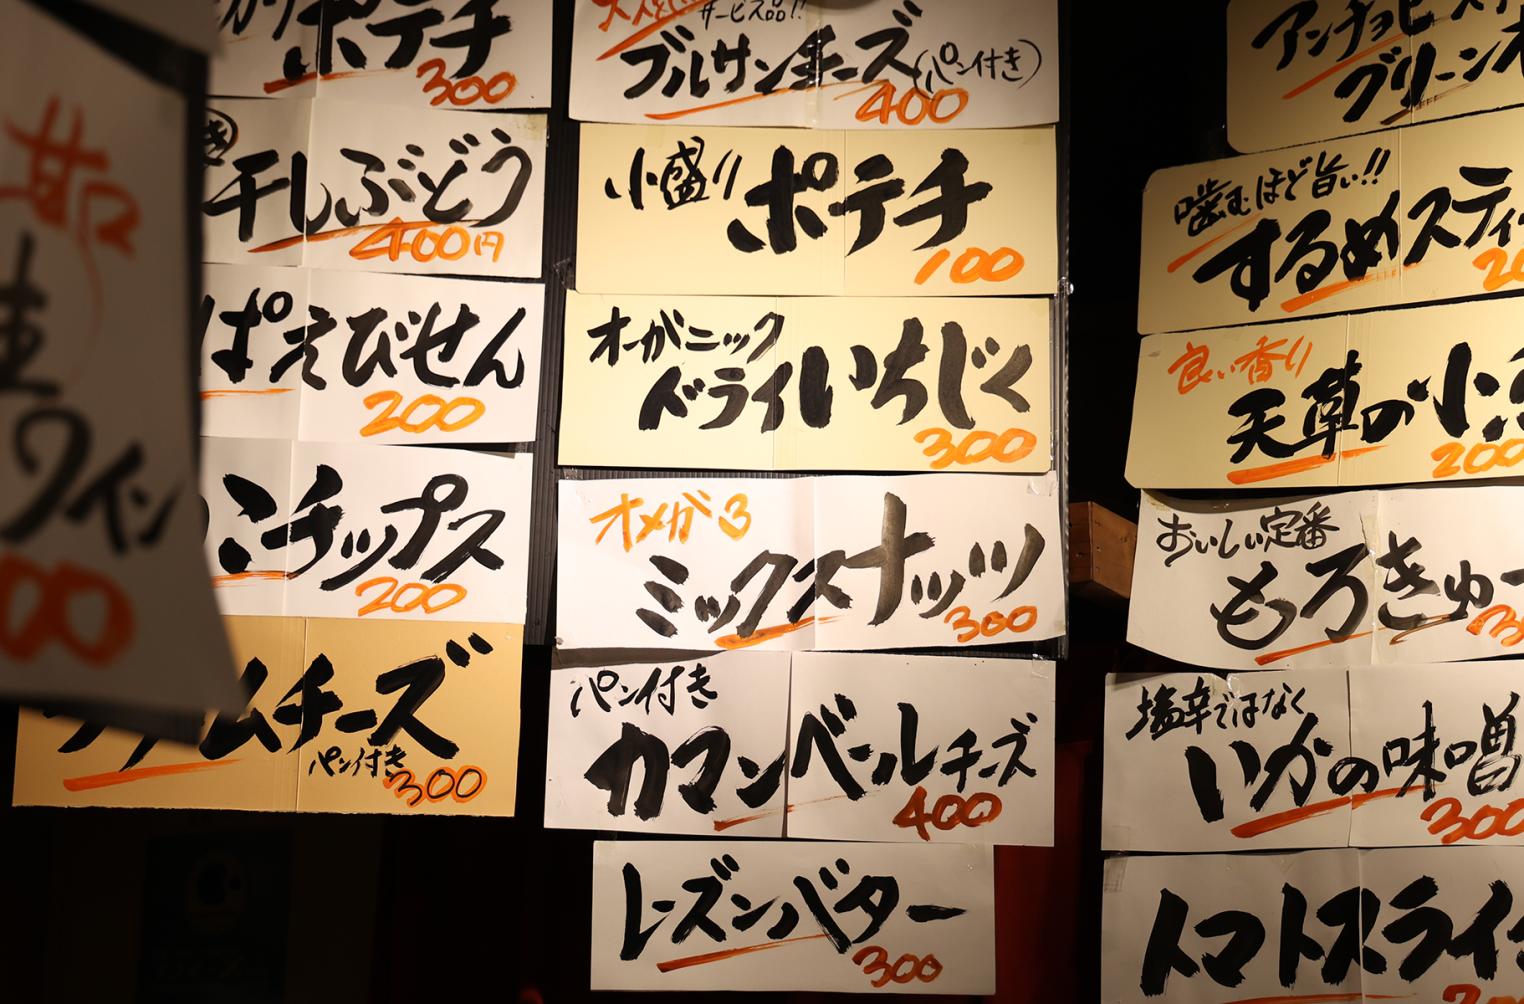 生
ワイン
ポテチ
300
干しぶどう
400円
ぱえびせん
200
チップス
200
ムチーズ
パン付き
300
サービス品!!
ブルサンチーズ(パン付き)
400
小盛り
ポテチ
100
オーガニック
ドライいちじく
300
オメガ3
ミックスナッツ
300
パン付き
カマンベールチーズ
400
レーズンバター
300
アンチョビ
グリーン
噛むほど旨い!!
するめスティ
良い香り
天草の小
200
おいしい定番
もろきゅー
塩辛ではなく
いかの味噌
300
トマトスライ